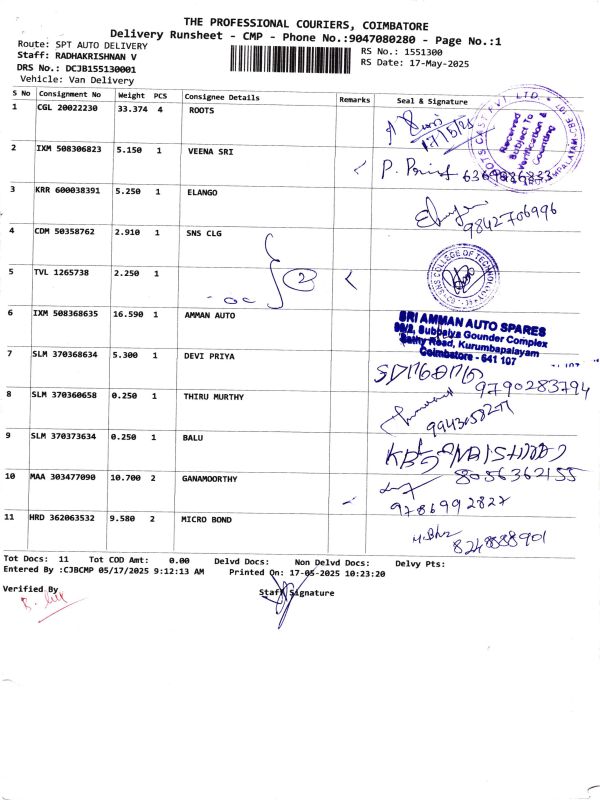 THE PROFESSIONAL COURIERS, COIMBATORE
Delivery Runsheet - CMP - Phone No.:9047080280 - Page No.:1
Route: SPT AUTO DELIVERY
RS No.: 1551300
Staff: RADHAKRISHNAN V
RS Date: 17-May-2025
DRS No.: DCJB155130001
Vehicle: Van Delivery
S No Consignment No Weight PCS Consignee Details Remarks Seal & Signature
1 CGL 20022230 33.374 4 ROOTS
17/5/25
Received
Subject To
Verification &
Counting
2 IXM 508306823 5.150 1 VEENA SRI
3 KRR 600038391 5.250 1 ELANGO
9842706996
4 CDM 50358762 2.910 1 SNS CLG
COLLEGE OF TECHNOLOGY
5 TVL 1265738 2.250 1
2
6 IXM 508368635 16.590 1 AMMAN AUTO
SRI AMMAN AUTO SPARES
Subbaiya Gounder Complex
Sathy Road, Kurumbapalayam
Coimbatore - 641 107
7 SLM 370368634 5.300 1 DEVI PRIYA
9790283794
8 SLM 370360658 0.250 1 THIRU MURTHY
9943058277
9 SLM 370373634 0.250 1 BALU
8056362155
10 MAA 303477090 10.700 2 GANAMOORTHY
9786992827
11 HRD 362063532 9.580 2 MICRO BOND
8248588901
Tot Docs: 11 Tot COD Amt: 0.00 Delvd Docs: Non Delvd Docs: Delvy Pts:
Entered By :CJBCMP 05/17/2025 9:12:13 AM Printed On: 17-05-2025 10:23:20
Verified By
Staff Signature